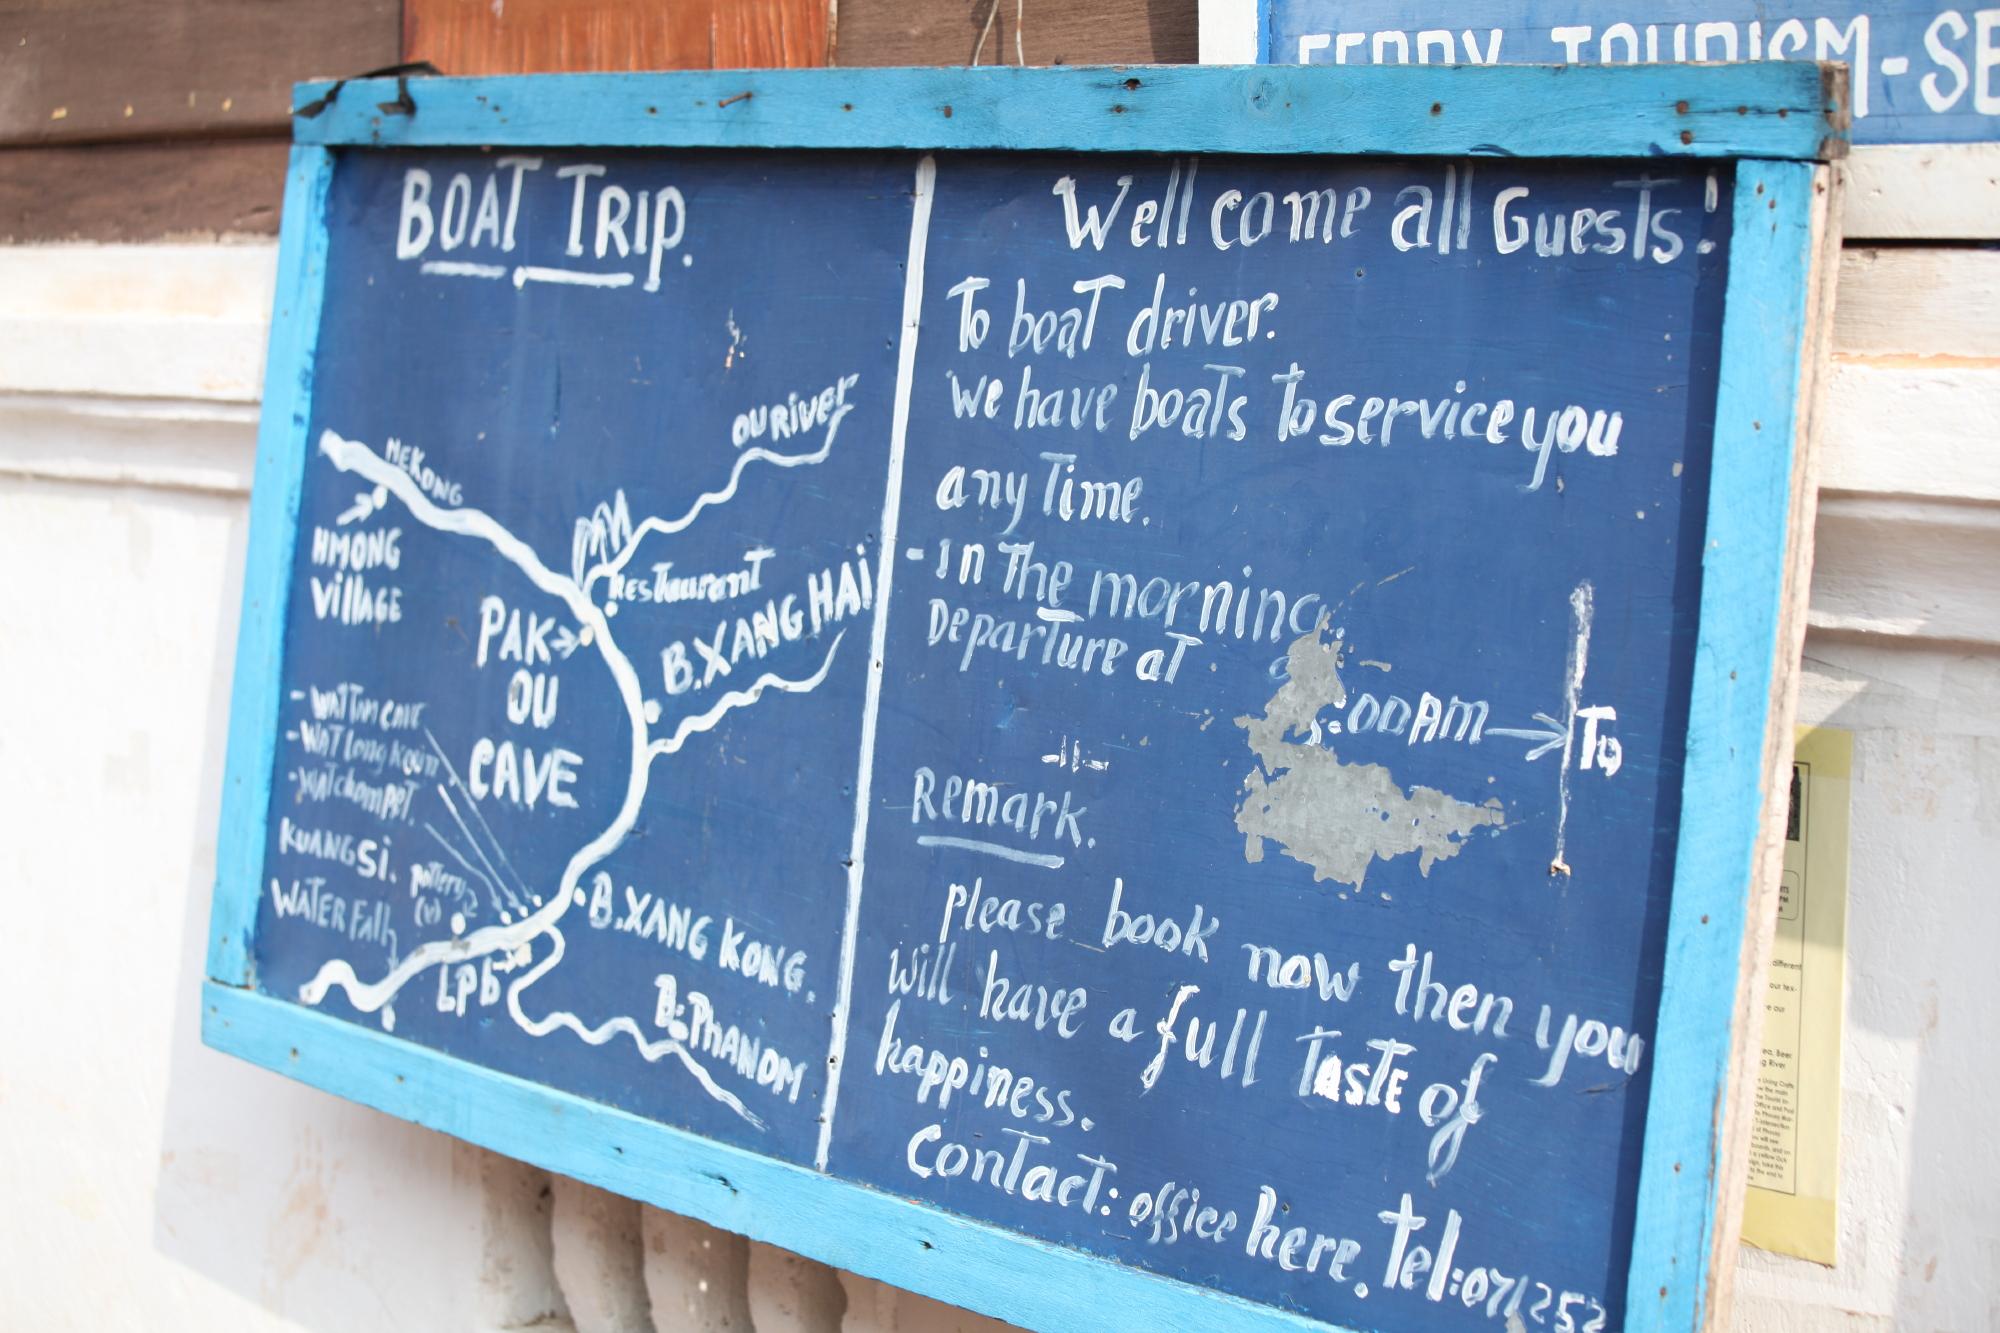 TOURISM-SE
BOAT TRIP.
OU RIVER
MEKONG
HMONG
VillAGE
Restaurant
B.XANG HAI
PAK
OU
CAVE
- WAT TAM CAVE
- WAT long Koun
- WAT chompet.
KUANG Si.
WATER Fall
pottery
(v)
LPb
B.XANG KONG.
B.PHANOM
Well come all Guests!
To boat driver.
We have boats To service you
any Time.
- In The morning
Departure at
:00AM
To
-11-
Remark.
please book now then you
will have a full TASTE of
happiness.
Contact: office here. Tel:071252